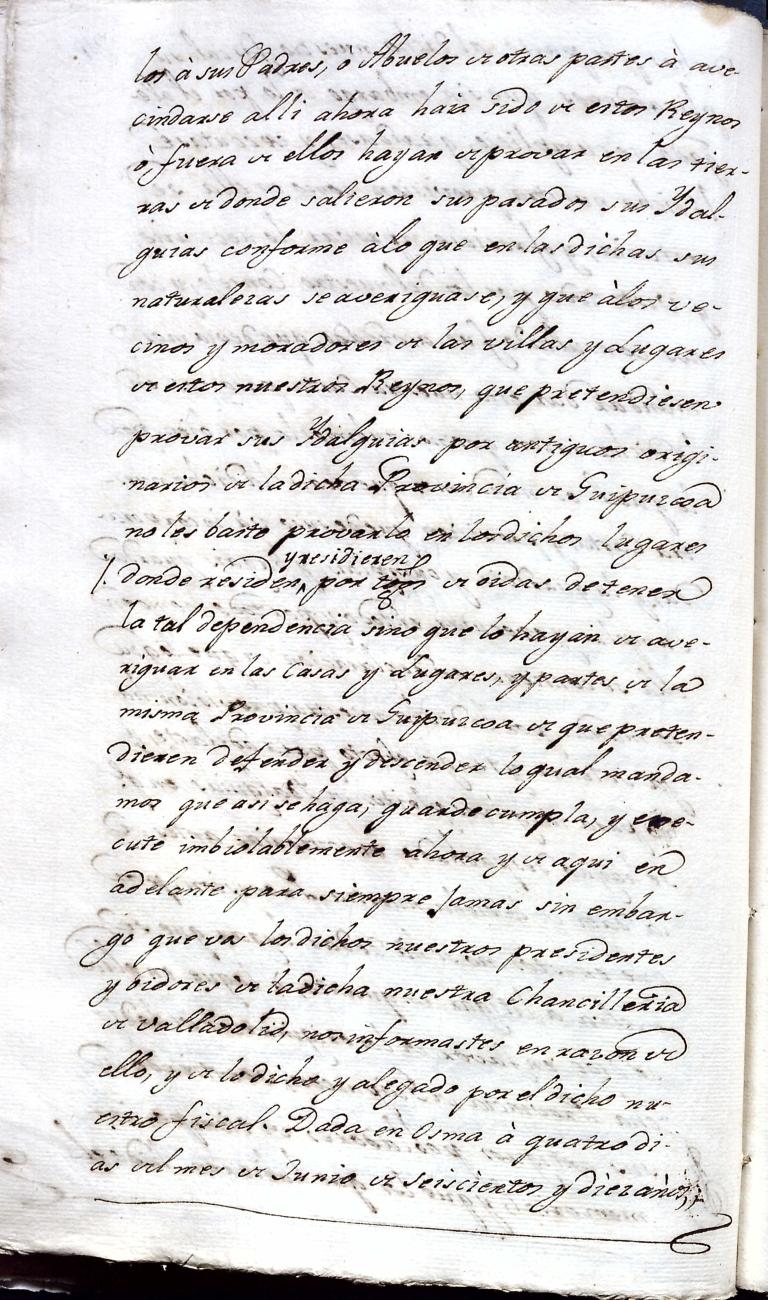 los à sus Padres, ò Abuelos de otras partes à ave-
cindarse alli ahora haia sido de estos Reynos
ò fuera de ellos hayan de provar en las tier-
ras de donde salieron sus pasados sus Ydal-
guias conforme àlo que en las dichas sus
naturalezas se averiguase, y que àlos ve-
cinos y moradores de las villas y Lugares
de estos nuestros Reynos, que pretendiesen
provar sus Ydalguias por antiguos origi-
narios de la dicha Provincia de Guipuzcoa
no les baste provarlo en los dichos lugares
y residieren
donde residen, por tgos de oidas de tener
la tal dependencia sino que lo hayan de ave-
riguar en las Casas y Lugares, y partes de la
misma Provincia de Guipuzcoa de que preten-
dieren defender y descender lo qual manda-
mos que asi se haga, guarde cumpla, y exe-
cute imbiolablemente ahora y de aqui en
adelante para siempre Jamas sin embar-
go que vos los dichos nuestros presidentes
y oidores de la dicha nuestra Chancilleria
de valladolid, nos informastes en razon de
ello, y de lo dicho y alegado por el dicho nu-
estro fiscal. Dada en Osma à quatro di-
as del mes de Junio de seiscientos y diez años;